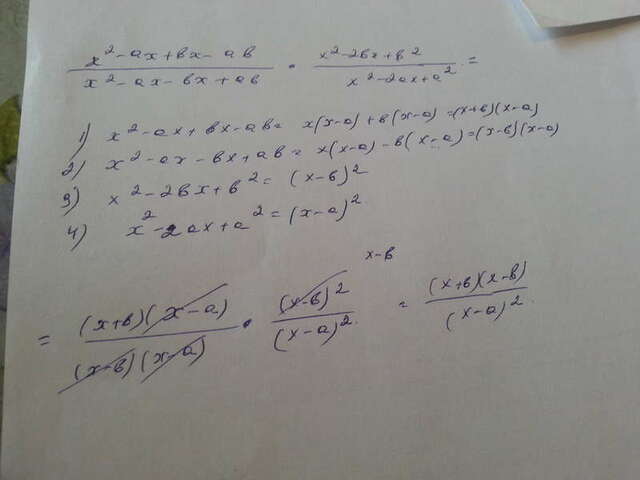 x² - ax + bx - ab / x² - ax - bx + ab · x² - 2bx + b² / x² - 2ax + a² =
1) x² - ax + bx - ab = x(x-a) + b(x-a) = (x+b)(x-a)
2) x² - ax - bx + ab = x(x-a) - b(x-a) = (x-b)(x-a)
3) x² - 2bx + b² = (x-b)²
4) x² - 2ax + a² = (x-a)²
x-b
= (x+b)(x-a) / (x-b)(x-a) · (x-b)² / (x-a)² = (x+b)(x-b) / (x-a)²